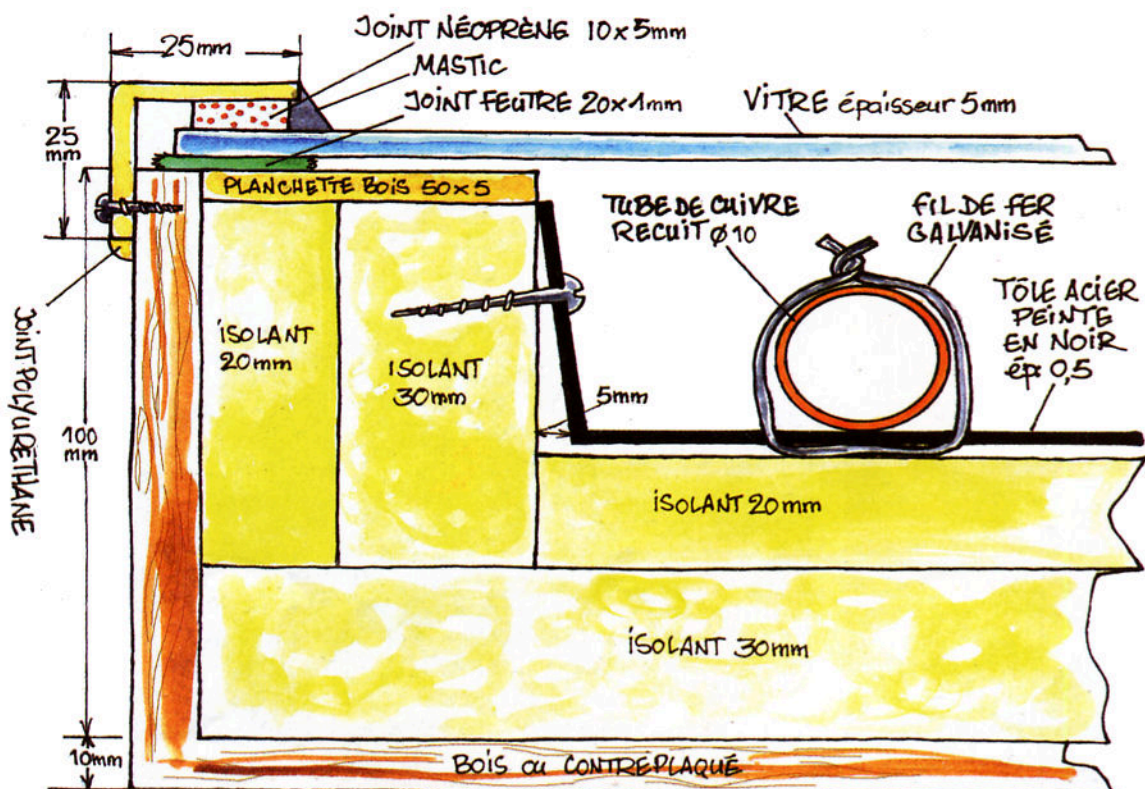 JOINT NÉOPRÈNE 10x5mm
25mm
MASTIC
JOINT FEUTRE 20x1mm
VITRE épaisseur 5mm
25
mm
PLANCHETTE BOIS 50x5
TUBE DE CUIVRE
RECUIT Ø10
FIL DE FER
GALVANISÉ
TÔLE ACIER
PEINTE
EN NOIR
ép: 0,5
JOINT POLYURÉTHANE
ISOLANT
20mm
ISOLANT
30mm
5mm
100
mm
ISOLANT 20mm
ISOLANT 30mm
10mm
BOIS ou CONTREPLAQUÉ